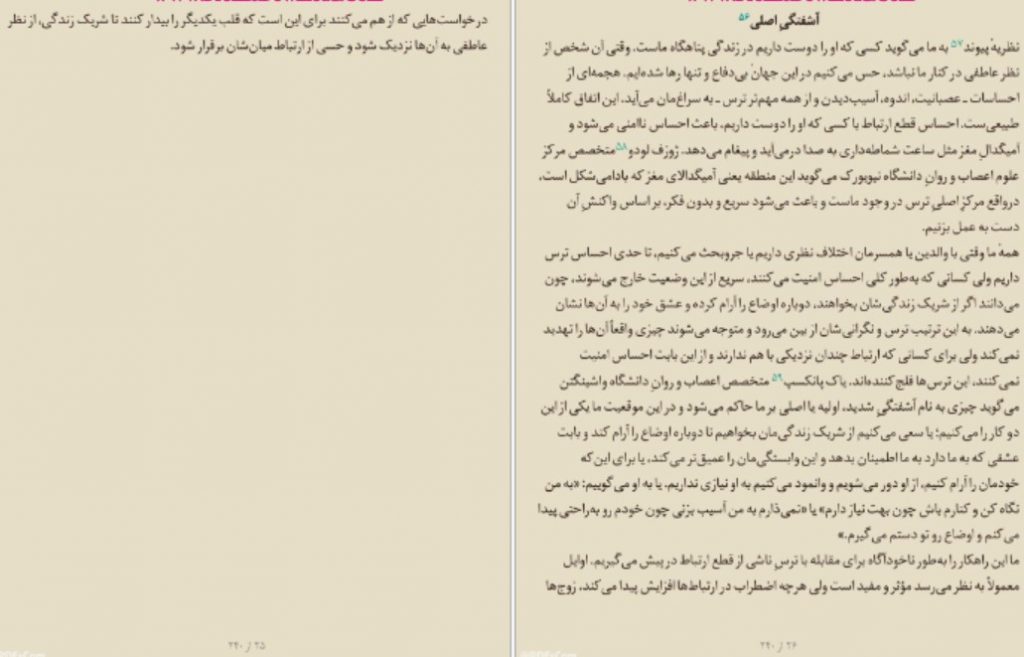 آشفتگیِ اصلی۵۶
نظریهٔ پیوند۵۷ به ما می‌گوید کسی که او را دوست داریم در زندگی پناهگاه ماست. وقتی آن شخص از
نظر عاطفی در کنار ما نباشد، حس می‌کنیم در این جهان بی‌دفاع و تنها رها شده‌ایم. هجمه‌ای از
احساسات ـ عصبانیت، اندوه، آسیب‌دیدن و از همه مهم‌تر ترس ـ به سراغ‌مان می‌آید. این اتفاق کاملاً
طبیعی‌ست. احساس قطع ارتباط با کسی که او را دوست داریم، باعث احساس ناامنی می‌شود و
آمیگدالِ مغز مثل ساعت شماطه‌داری به صدا درمی‌آید و پیغام می‌دهد. ژوزف لودو۵۸ متخصص مرکز
علوم اعصاب و روانِ دانشگاه نیویورک می‌گوید این منطقه یعنی آمیگدالای مغز که بادامی‌شکل است،
درواقع مرکزِ اصلیِ ترس در وجود ماست و باعث می‌شود سریع و بدون فکر، بر اساس واکنشِ آن
دست به عمل بزنیم.
همهٔ ما وقتی با والدین یا همسرمان اختلاف نظری داریم یا جروبحث می‌کنیم، تا حدی احساس ترس
داریم ولی کسانی که به‌طور کلی احساس امنیت می‌کنند، سریع از این وضعیت خارج می‌شوند، چون
می‌دانند اگر از شریک زندگی‌شان بخواهند، دوباره اوضاع را آرام کرده و عشق خود را به آن‌ها نشان
می‌دهند. به این ترتیب ترس و نگرانی‌شان از بین می‌رود و متوجه می‌شوند چیزی واقعاً آن‌ها را تهدید
نمی‌کند ولی برای کسانی که ارتباط چندان نزدیکی با هم ندارند و از این بابت احساس امنیت
نمی‌کنند، این ترس‌ها فلج‌کننده‌اند. یاک پانکسپ۵۹ متخصص اعصاب و روانِ دانشگاه واشینگتن
می‌گوید چیزی به نام آشفتگیِ شدید، اولیه یا اصلی بر ما حاکم می‌شود و در این موقعیت ما یکی از این
دو کار را می‌کنیم؛ یا سعی می‌کنیم از شریک زندگی‌مان بخواهیم تا دوباره اوضاع را آرام کند و بابت
عشقی که به ما دارد به ما اطمینان بدهد و این وابستگی‌مان را عمیق‌تر می‌کند، یا برای این‌که
خودمان را آرام کنیم، از او دور می‌شویم و وانمود می‌کنیم به او نیازی نداریم. یا به او می‌گوییم: «به من
نگاه کن و کنارم باش چون بهت نیاز دارم» یا «نمی‌ذارم به من آسیب بزنی چون خودم رو به‌راحتی پیدا
می‌کنم و اوضاع رو تو دستم می‌گیرم.»
ما این راهکار را به‌طور ناخودآگاه برای مقابله با ترسِ ناشی از قطع ارتباط در پیش می‌گیریم. اوایل
معمولاً به نظر می‌رسد مؤثر و مفید است ولی هرچه اضطراب در ارتباط‌ها افزایش پیدا می‌کند، زوج‌ها
۲۶ / ۲۴۰
درخواست‌هایی که از هم می‌کنند برای این است که قلب یکدیگر را بیدار کنند تا شریک زندگی، از نظر
عاطفی به آن‌ها نزدیک شود و حسی از ارتباط میان‌شان برقرار شود.
۲۵ / ۲۴۰